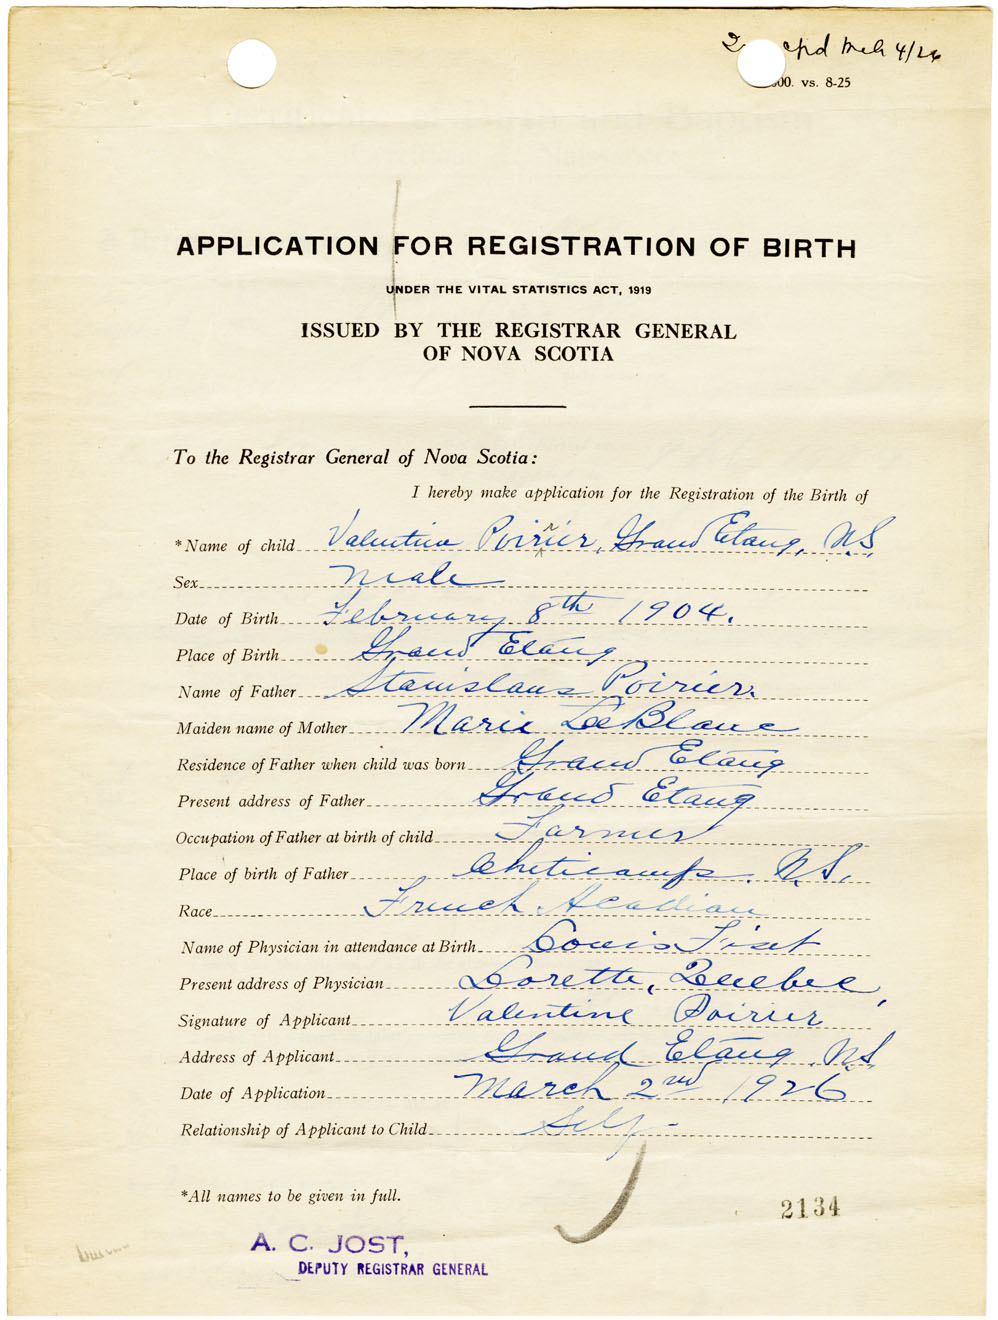 cpd Mch 4/26
00. vs. 8-25
APPLICATION FOR REGISTRATION OF BIRTH
UNDER THE VITAL STATISTICS ACT, 1919
ISSUED BY THE REGISTRAR GENERAL
OF NOVA SCOTIA
To the Registrar General of Nova Scotia:
I hereby make application for the Registration of the Birth of
*Name of child Valentine Poirier, Grand Etang, N.S.
Sex Male
Date of Birth February 8th 1904.
Place of Birth Grand Etang
Name of Father Stanislaus Poirier.
Maiden name of Mother Marie LeBlanc
Residence of Father when child was born Grand Etang
Present address of Father Grand Etang
Occupation of Father at birth of child Farmer
Place of birth of Father Cheticamp. N.S.
Race French Acadian
Name of Physician in attendance at Birth Louis Fiset
Present address of Physician Lorette, Quebec,
Signature of Applicant Valentine Poirier
Address of Applicant Grand Etang, N.S.
Date of Application March 2nd 1926
Relationship of Applicant to Child Self -
*All names to be given in full.
2134
A. C. JOST,
DEPUTY REGISTRAR GENERAL